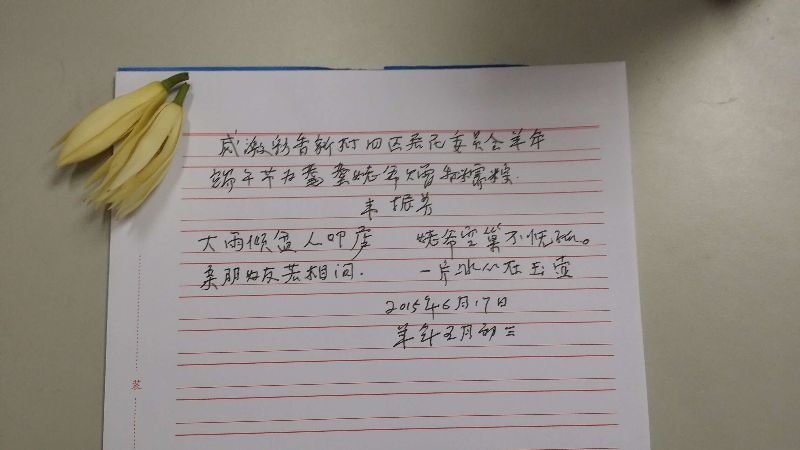 感激彩香新村四区居民委员会羊年
端午节为耄耋赠糯粽.
振芳
大雨倾盆人叩庐 空巢不忧孤。
亲朋好友若相问. 一片冰心在玉壶
2015年6月17日
羊年五月初二
装